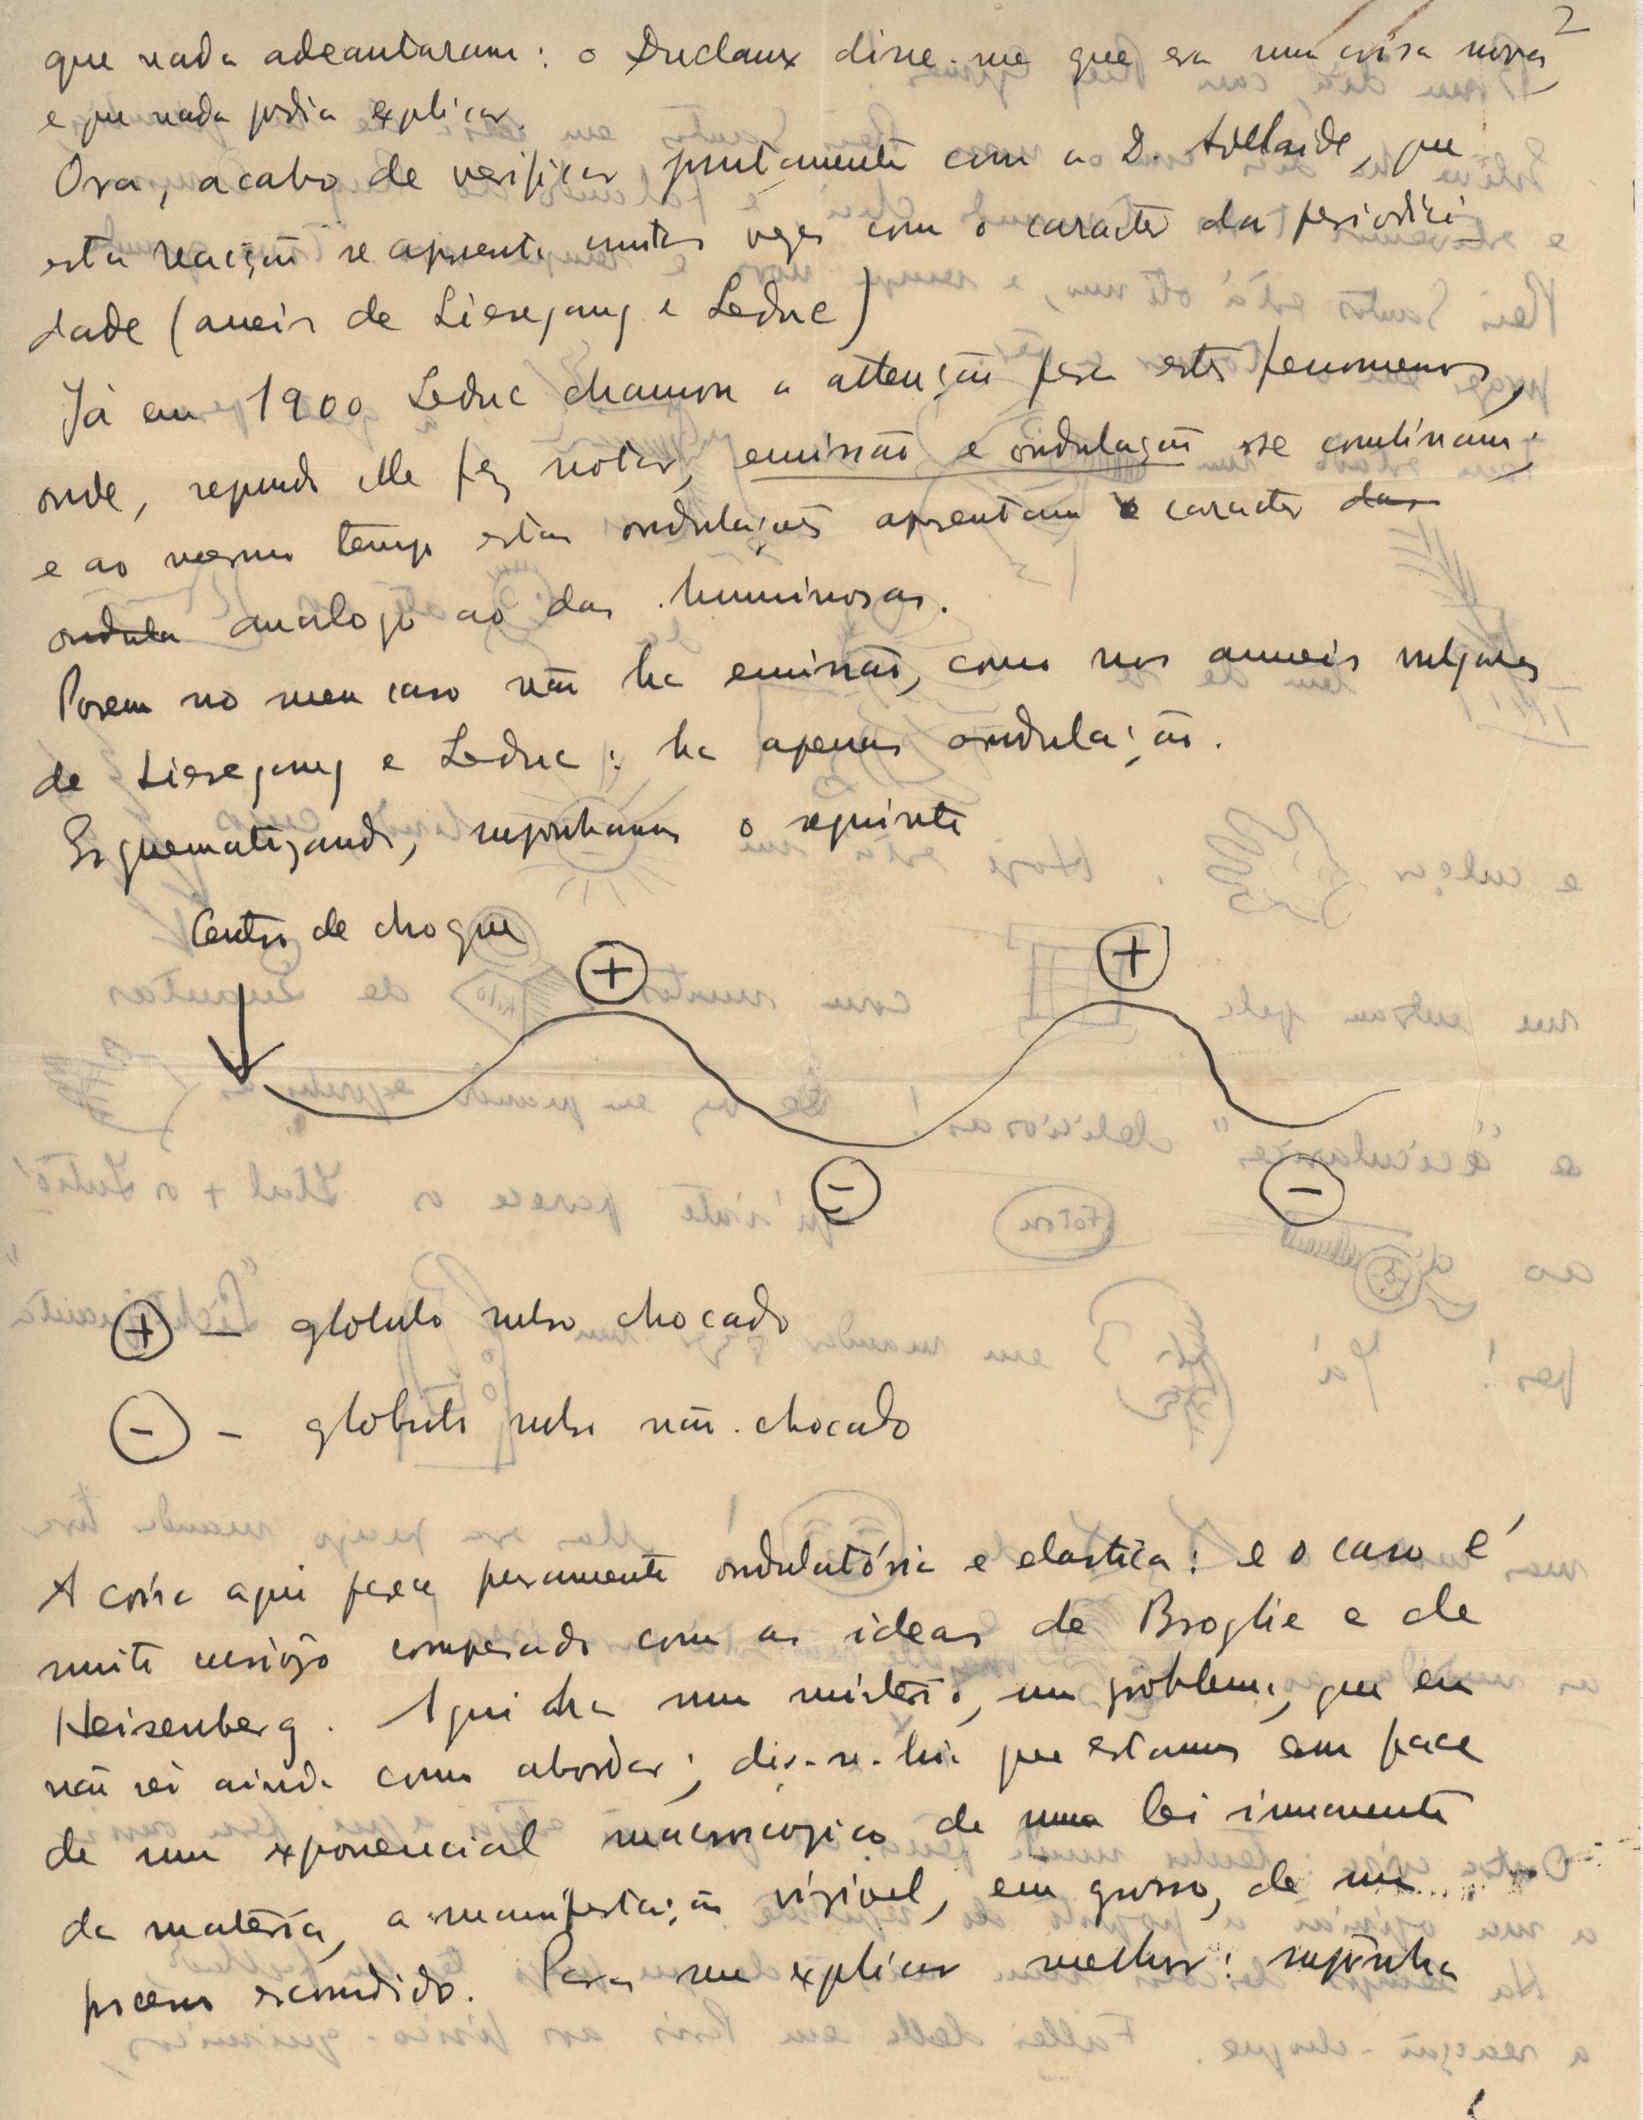 2
que nada adeantaram: o Duclaux disse-me que era uma coisa nova
e que nada podia explicar.
Ora, acabo de verificar juntamente com a D. Adelaide, que
esta reacção se apresenta muitas vezes com o caracter da periodici-
dade (aneis de Liesegang e Leduc)
Já em 1900 Leduc chamou a attenção para estes fenomenos,
onde, segundo elle fez notar, emissão e ondulação se combinam;
e ao mesmo tempo estas ondulações apresentam o caracter das
ondula analogo ao das luminosas.
Porem no meu caso não ha emissão, como nos anneis vulgares
de Liesegang e Leduc: ha apenas ondulação.
Esquematizando, suponhamos o seguinte
Centro de choque
+
+
-
-
+ - globulo rubro chocado
- - globulo rubro não chocado
A coisa aqui parece puramente ondulatória e elastica: e o caso é
muito curioso comparado com as ideas de Broglie e de
Heisenberg. Aqui ha um misterio, um problema, que eu
não sei ainda como abordar; dir-se-hia que estamos em face
de um exponencial macroscopico de uma lei immanente
da materia, a manifestação visivel, em grosso, de um
processo escondido. Para me explicar melhor: suponha